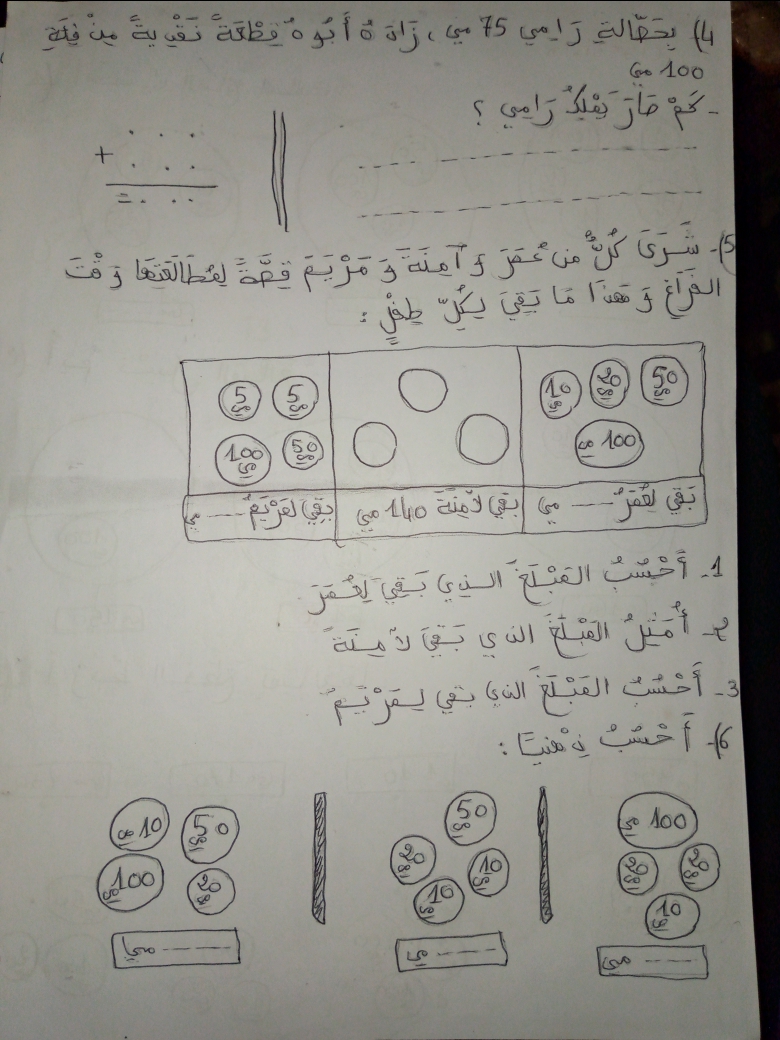 4) بِحَصَّالةِ رَامِي 75 مي، زَادَهُ أَبُوهُ قِطْعَةً نَقْدِيةً مِنْ فِئَةِ
100 مي
- كَمْ صَارَ يَمْلِكُ رَامِي ؟
+
=
5)- شَرَى كُلٌّ مِنْ عُمَرَ وَ آمِنَةَ وَ مَرْيَمَ قِصَّةً لِمُطَالَعَتِهَا وَقْتَ
الفَرَاغِ وَ هَذَا مَا بَقِيَ لِكُلِّ طِفْلٍ :
50 مي 20 مي 10 مي
100 مي
5 مي 5 مي
50 مي 100 مي
بَقِيَ لِعُمَرَ ---- مي
بقي لآمِنَةَ 140 مي
بَقِيَ لمَرْيَمَ ---- مي
1- أَحْسُبُ المَبْلَغَ الذِي بَقِيَ لِعُمَرَ
2- أُمَثِّلُ المَبْلَغَ الذي بَقِيَ لآمِنَةَ
3- أَحْسُبُ المَبْلَغَ الذي بقي لِمَرْيَمَ
6)- أَحْسُبُ ذِهْنِيًا :
100 مي
20 مي 20 مي
10 مي
---- مي
50 مي
20 مي 10 مي
10 مي
---- مي
50 مي 10 مي
20 مي 100 مي
---- مي